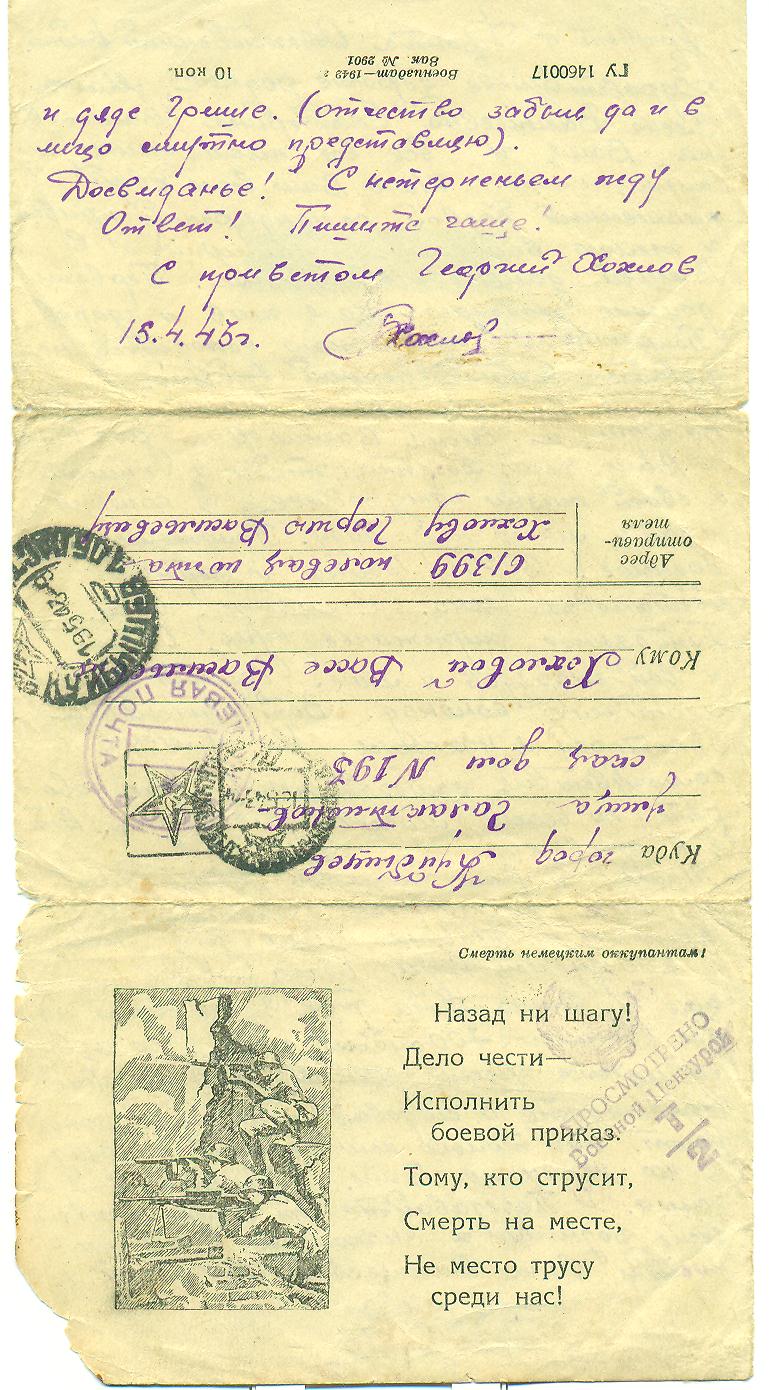 ГУ 1460017 Воениздат—1942 г. 10 коп.
Зак. № 2901
и дяде Грише. (отчество забыл да и в
лицо смутно представляю).
Досвиданье! С нетерпеньем жду
Ответ! Пишите чаще!
С приветом Георгий Хохлов
15.4.43г. Хохлов
Куда город Куйбышев
улица Галактионов-
ская дом N 193
Кому Хохловой Вассе Васильевне
Адрес отправи-
теля
61399 полевая почта
Хохлову Георгию Васильевичу
ПОЛЕВАЯ ПОЧТА
КУЙБЫШЕВ
19 5 43
Смерть немецким оккупантам!
Назад ни шагу!
Дело чести—
Исполнить
боевой приказ.
Тому, кто струсит,
Смерть на месте,
Не место трусу
среди нас!
ПРОСМОТРЕНО
Военной Цензурой